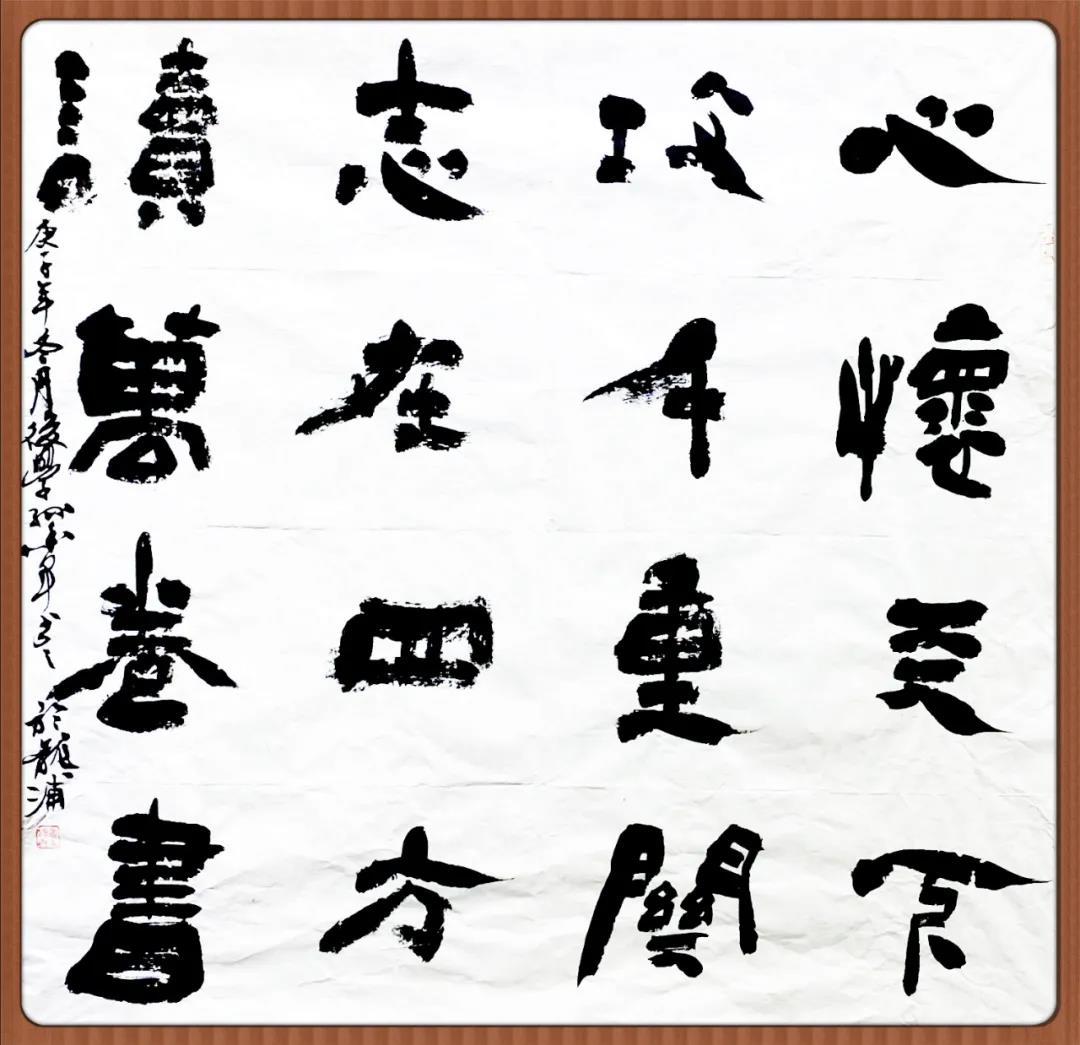 心懷天下
攻千重關
志在四方
讀萬卷書
庚子年冬月後學
書於龍浦